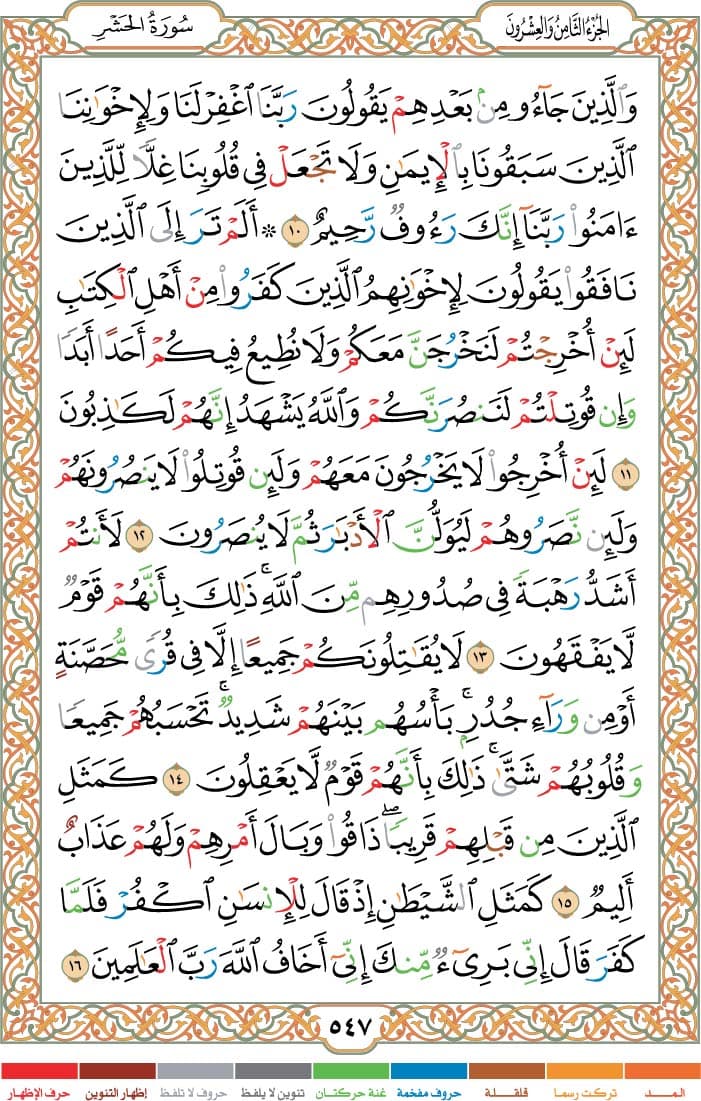 الجُزْءُ الثَّامِنُ وَالعِشْرُونَ
سُورَةُ الحَشْرِ
وَٱلَّذِينَ جَآءُو مِنۢ بَعْدِهِمْ يَقُولُونَ رَبَّنَا ٱغْفِرْ لَنَا وَلِإِخْوَٰنِنَا
ٱلَّذِينَ سَبَقُونَا بِٱلْإِيمَٰنِ وَلَا تَجْعَلْ فِى قُلُوبِنَا غِلًّا لِّلَّذِينَ
ءَامَنُوا۟ رَبَّنَآ إِنَّكَ رَءُوفٌ رَّحِيمٌ ١٠ ۞ أَلَمْ تَرَ إِلَى ٱلَّذِينَ
نَافَقُوا۟ يَقُولُونَ لِإِخْوَٰنِهِمُ ٱلَّذِينَ كَفَرُوا۟ مِنْ أَهْلِ ٱلْكِتَٰبِ
لَئِنْ أُخْرِجْتُمْ لَنَخْرُجَنَّ مَعَكُمْ وَلَا نُطِيعُ فِيكُمْ أَحَدًا أَبَدًا
وَإِن قُوتِلْتُمْ لَنَنصُرَنَّكُمْ وَٱللَّهُ يَشْهَدُ إِنَّهُمْ لَكَٰذِبُونَ
١١ لَئِنْ أُخْرِجُوا۟ لَا يَخْرُجُونَ مَعَهُمْ وَلَئِن قُوتِلُوا۟ لَا يَنصُرُونَهُمْ
وَلَئِن نَّصَرُوهُمْ لَيُوَلُّنَّ ٱلْأَدْبَٰرَ ثُمَّ لَا يُنصَرُونَ ١٢ لَأَنتُمْ
أَشَدُّ رَهْبَةً فِى صُدُورِهِم مِّنَ ٱللَّهِ ۚ ذَٰلِكَ بِأَنَّهُمْ قَوْمٌ
لَّا يَفْقَهُونَ ١٣ لَا يُقَٰتِلُونَكُمْ جَمِيعًا إِلَّا فِى قُرًى مُّحَصَّنَةٍ
أَوْ مِن وَرَآءِ جُدُرٍۭ ۚ بَأْسُهُم بَيْنَهُمْ شَدِيدٌ ۚ تَحْسَبُهُمْ جَمِيعًا
وَقُلُوبُهُمْ شَتَّىٰ ۚ ذَٰلِكَ بِأَنَّهُمْ قَوْمٌ لَّا يَعْقِلُونَ ١٤ كَمَثَلِ
ٱلَّذِينَ مِن قَبْلِهِمْ قَرِيبًا ۖ ذَاقُوا۟ وَبَالَ أَمْرِهِمْ وَلَهُمْ عَذَابٌ
أَلِيمٌ ١٥ كَمَثَلِ ٱلشَّيْطَٰنِ إِذْ قَالَ لِلْإِنسَٰنِ ٱكْفُرْ فَلَمَّا
كَفَرَ قَالَ إِنِّى بَرِىٓءٌ مِّنكَ إِنِّىٓ أَخَافُ ٱللَّهَ رَبَّ ٱلْعَٰلَمِينَ ١٦
٥٤٧
المـــد تركت رسما قلقلة حروف مفخمة غنة حركتان تنوين لا يلفظ حروف لا تلفظ إظهار التنوين حرف الإظهار